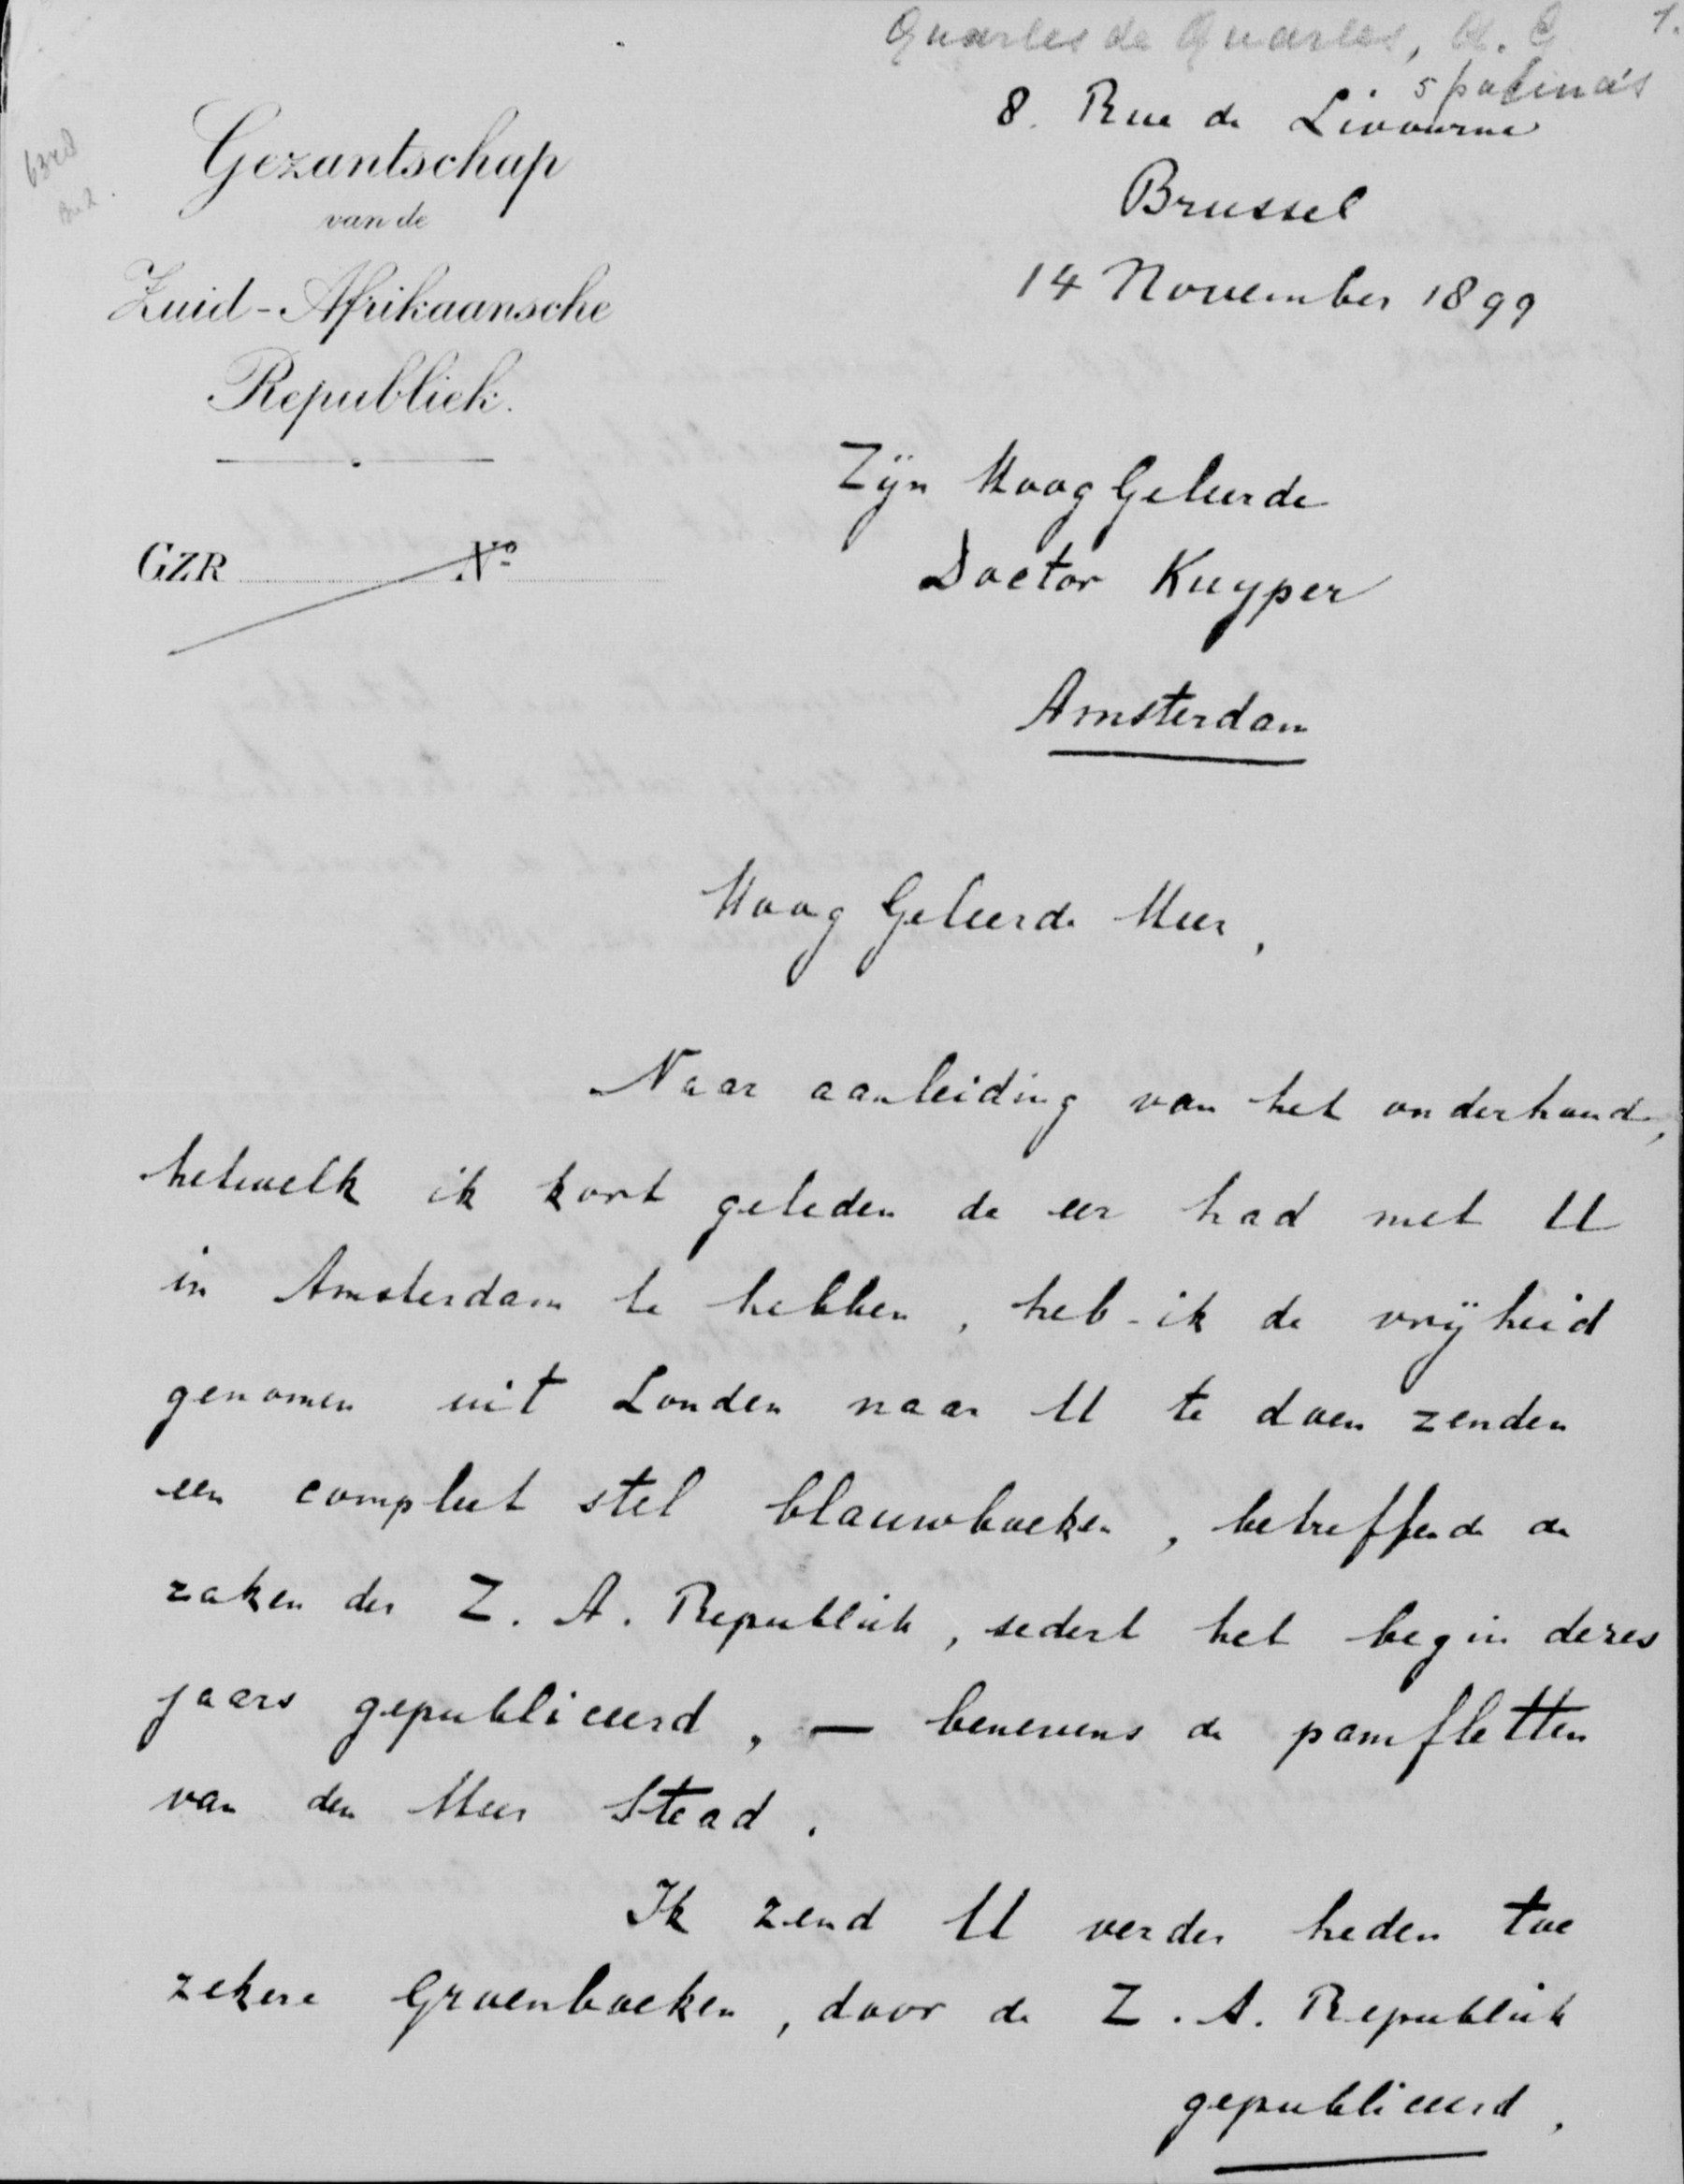 Quarles de Quarles, H. C 1.
5 pagina's
8. Rue de Livourne
Brussel
14 November 1899
Gezantschap
van de
Zuid-Afrikaansche
Republiek.
GZR No
Zijn Hoog Geleerde
Doctor Kuyper
Amsterdam
Hoog Geleerde Heer,
Naar aanleiding van het onderhoud,
hetwelk ik kort geleden de eer had met U
in Amsterdam te hebben, heb ik de vrijheid
genomen uit Londen naar U te doen zenden
een compleet stel blauwboeken, betreffende de
zaken der Z. A. Republiek, sedert het begin dezes
jaars gepubliceerd, — benevens de pamfletten
van den Heer Stead.
Ik zend U verder heden toe
zekere Groenboeken, door de Z. A. Republiek
gepubliceerd,